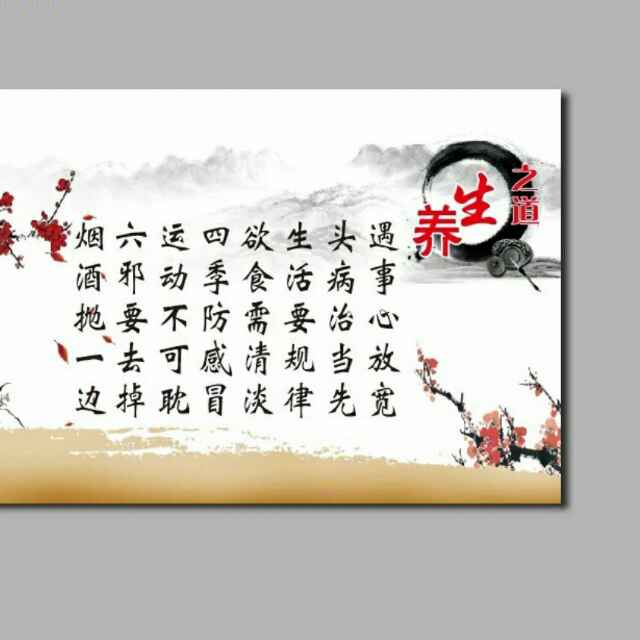 养生之道
遇事心放宽
头病治当先
生活要规律
欲食需清淡
四季防感冒
运动不可耽
六邪要去掉
烟酒抛一边